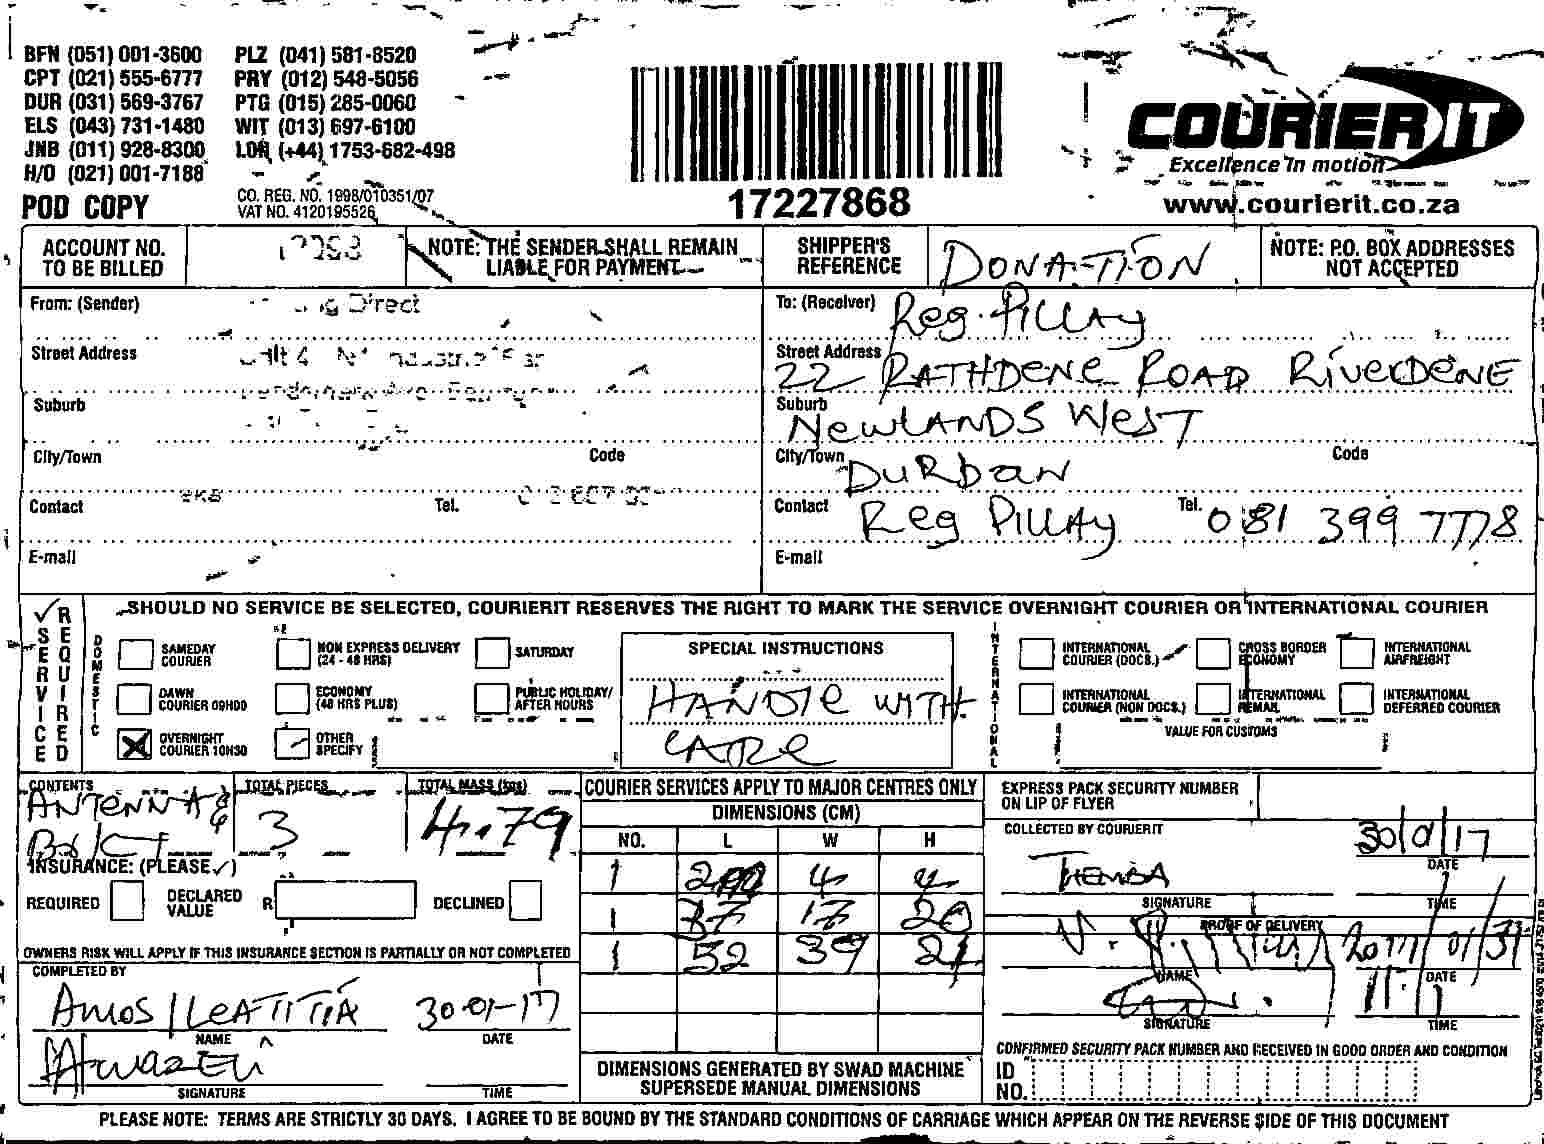 BFN (051) 001-3600 PLZ (041) 581-8520
CPT (021) 555-6777 PRY (012) 548-5056
DUR (031) 569-3767 PTG (015) 285-0060
ELS (043) 731-1480 WIT (013) 697-6100
JNB (011) 928-8300 LON (+44) 1753-682-498
H/O (021) 001-7188
POD COPY
CO. REG. NO. 1998/010351/07
VAT NO. 4120195526
17227868
COURIER IT
Excellence in motion
www.courierit.co.za
ACCOUNT NO. TO BE BILLED
NOTE: THE SENDER SHALL REMAIN LIABLE FOR PAYMENT
SHIPPER'S REFERENCE DONATION
NOTE: P.O. BOX ADDRESSES NOT ACCEPTED
From: (Sender) Direct
Street Address
Suburb
City/Town Code
Contact Tel.
E-mail
To: (Receiver) Reg. Pillay
Street Address 22 RATHDENE ROAD RIVERDENE
Suburb NewLANDS West
City/Town Durban Code
Contact Reg Pillay Tel. 081 399 7778
E-mail
✓ SERVICE REQUIRED
SHOULD NO SERVICE BE SELECTED, COURIERIT RESERVES THE RIGHT TO MARK THE SERVICE OVERNIGHT COURIER OR INTERNATIONAL COURIER
DOMESTIC
SAMEDAY COURIER
NON EXPRESS DELIVERY (24 - 48 HRS)
SATURDAY
DAWN COURIER 09H00
ECONOMY (48 HRS PLUS)
PUBLIC HOLIDAY/ AFTER HOURS
OVERNIGHT COURIER 10H30
OTHER SPECIFY
SPECIAL INSTRUCTIONS
HANDLE WITH
CARE
INTERNATIONAL
INTERNATIONAL COURIER (DOCS.)
CROSS BORDER ECONOMY
INTERNATIONAL AIRFREIGHT
INTERNATIONAL COURIER (NON DOCS.)
INTERNATIONAL REMAIL
INTERNATIONAL DEFERRED COURIER
VALUE FOR CUSTOMS
CONTENTS ANTENNA &
TOTAL PIECES 3
TOTAL MASS (kgs) 4.79
INSURANCE: (PLEASE ✓)
REQUIRED
DECLARED VALUE R
DECLINED
OWNERS RISK WILL APPLY IF THIS INSURANCE SECTION IS PARTIALLY OR NOT COMPLETED
COMPLETED BY
AMOS / LEATITIA 30-01-17
NAME DATE
SIGNATURE TIME
COURIER SERVICES APPLY TO MAJOR CENTRES ONLY
DIMENSIONS (CM)
NO. L W H
1 4 4
1 17 20
1 52 39 21
DIMENSIONS GENERATED BY SWAD MACHINE SUPERSEDE MANUAL DIMENSIONS
EXPRESS PACK SECURITY NUMBER ON LIP OF FLYER
COLLECTED BY COURIERIT
THEMBA 30/01/17
DATE
SIGNATURE TIME
PROOF OF DELIVERY
2017/01/31
NAME DATE
SIGNATURE TIME
CONFIRMED SECURITY PACK NUMBER AND RECEIVED IN GOOD ORDER AND CONDITION
ID NO.
PLEASE NOTE: TERMS ARE STRICTLY 30 DAYS. I AGREE TO BE BOUND BY THE STANDARD CONDITIONS OF CARRIAGE WHICH APPEAR ON THE REVERSE SIDE OF THIS DOCUMENT